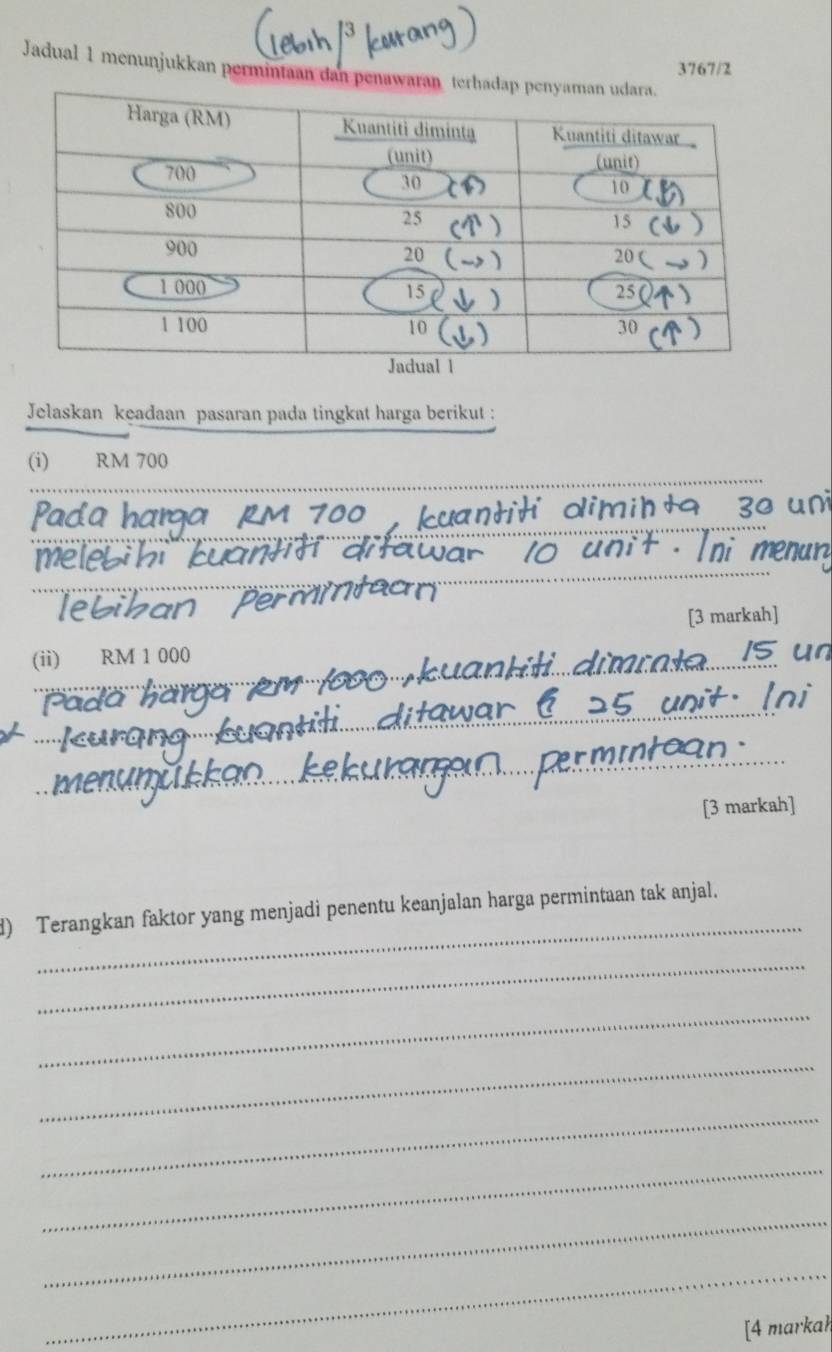 (lebih/3 kurang)
3767/2
Jadual 1 menunjukkan permintaan dan penawaran terhadap penyaman udara.
Harga (RM) Kuantiti diminta (unit) Kuantiti ditawar (unit)
700 30 (↑) 10 (↓)
800 25 (↑) 15 (↓)
900 20 (→) 20 (→)
1 000 15 (↓) 25 (↑)
1 100 10 (↓) 30 (↑)
Jadual 1
Jelaskan keadaan pasaran pada tingkat harga berikut :
(i) RM 700
Pada harga RM 700, kuantiti diminta 30 uni
melebihi kuantiti ditawar 10 unit. Ini menun
lebihan permintaan
[3 markah]
(ii) RM 1 000
Pada harga RM 1000, kuantiti diminta 15 un
kurang kuantiti ditawar 25 unit. Ini
menunjukkan kekurangan permintaan.
[3 markah]
d) Terangkan faktor yang menjadi penentu keanjalan harga permintaan tak anjal.
[4 markah